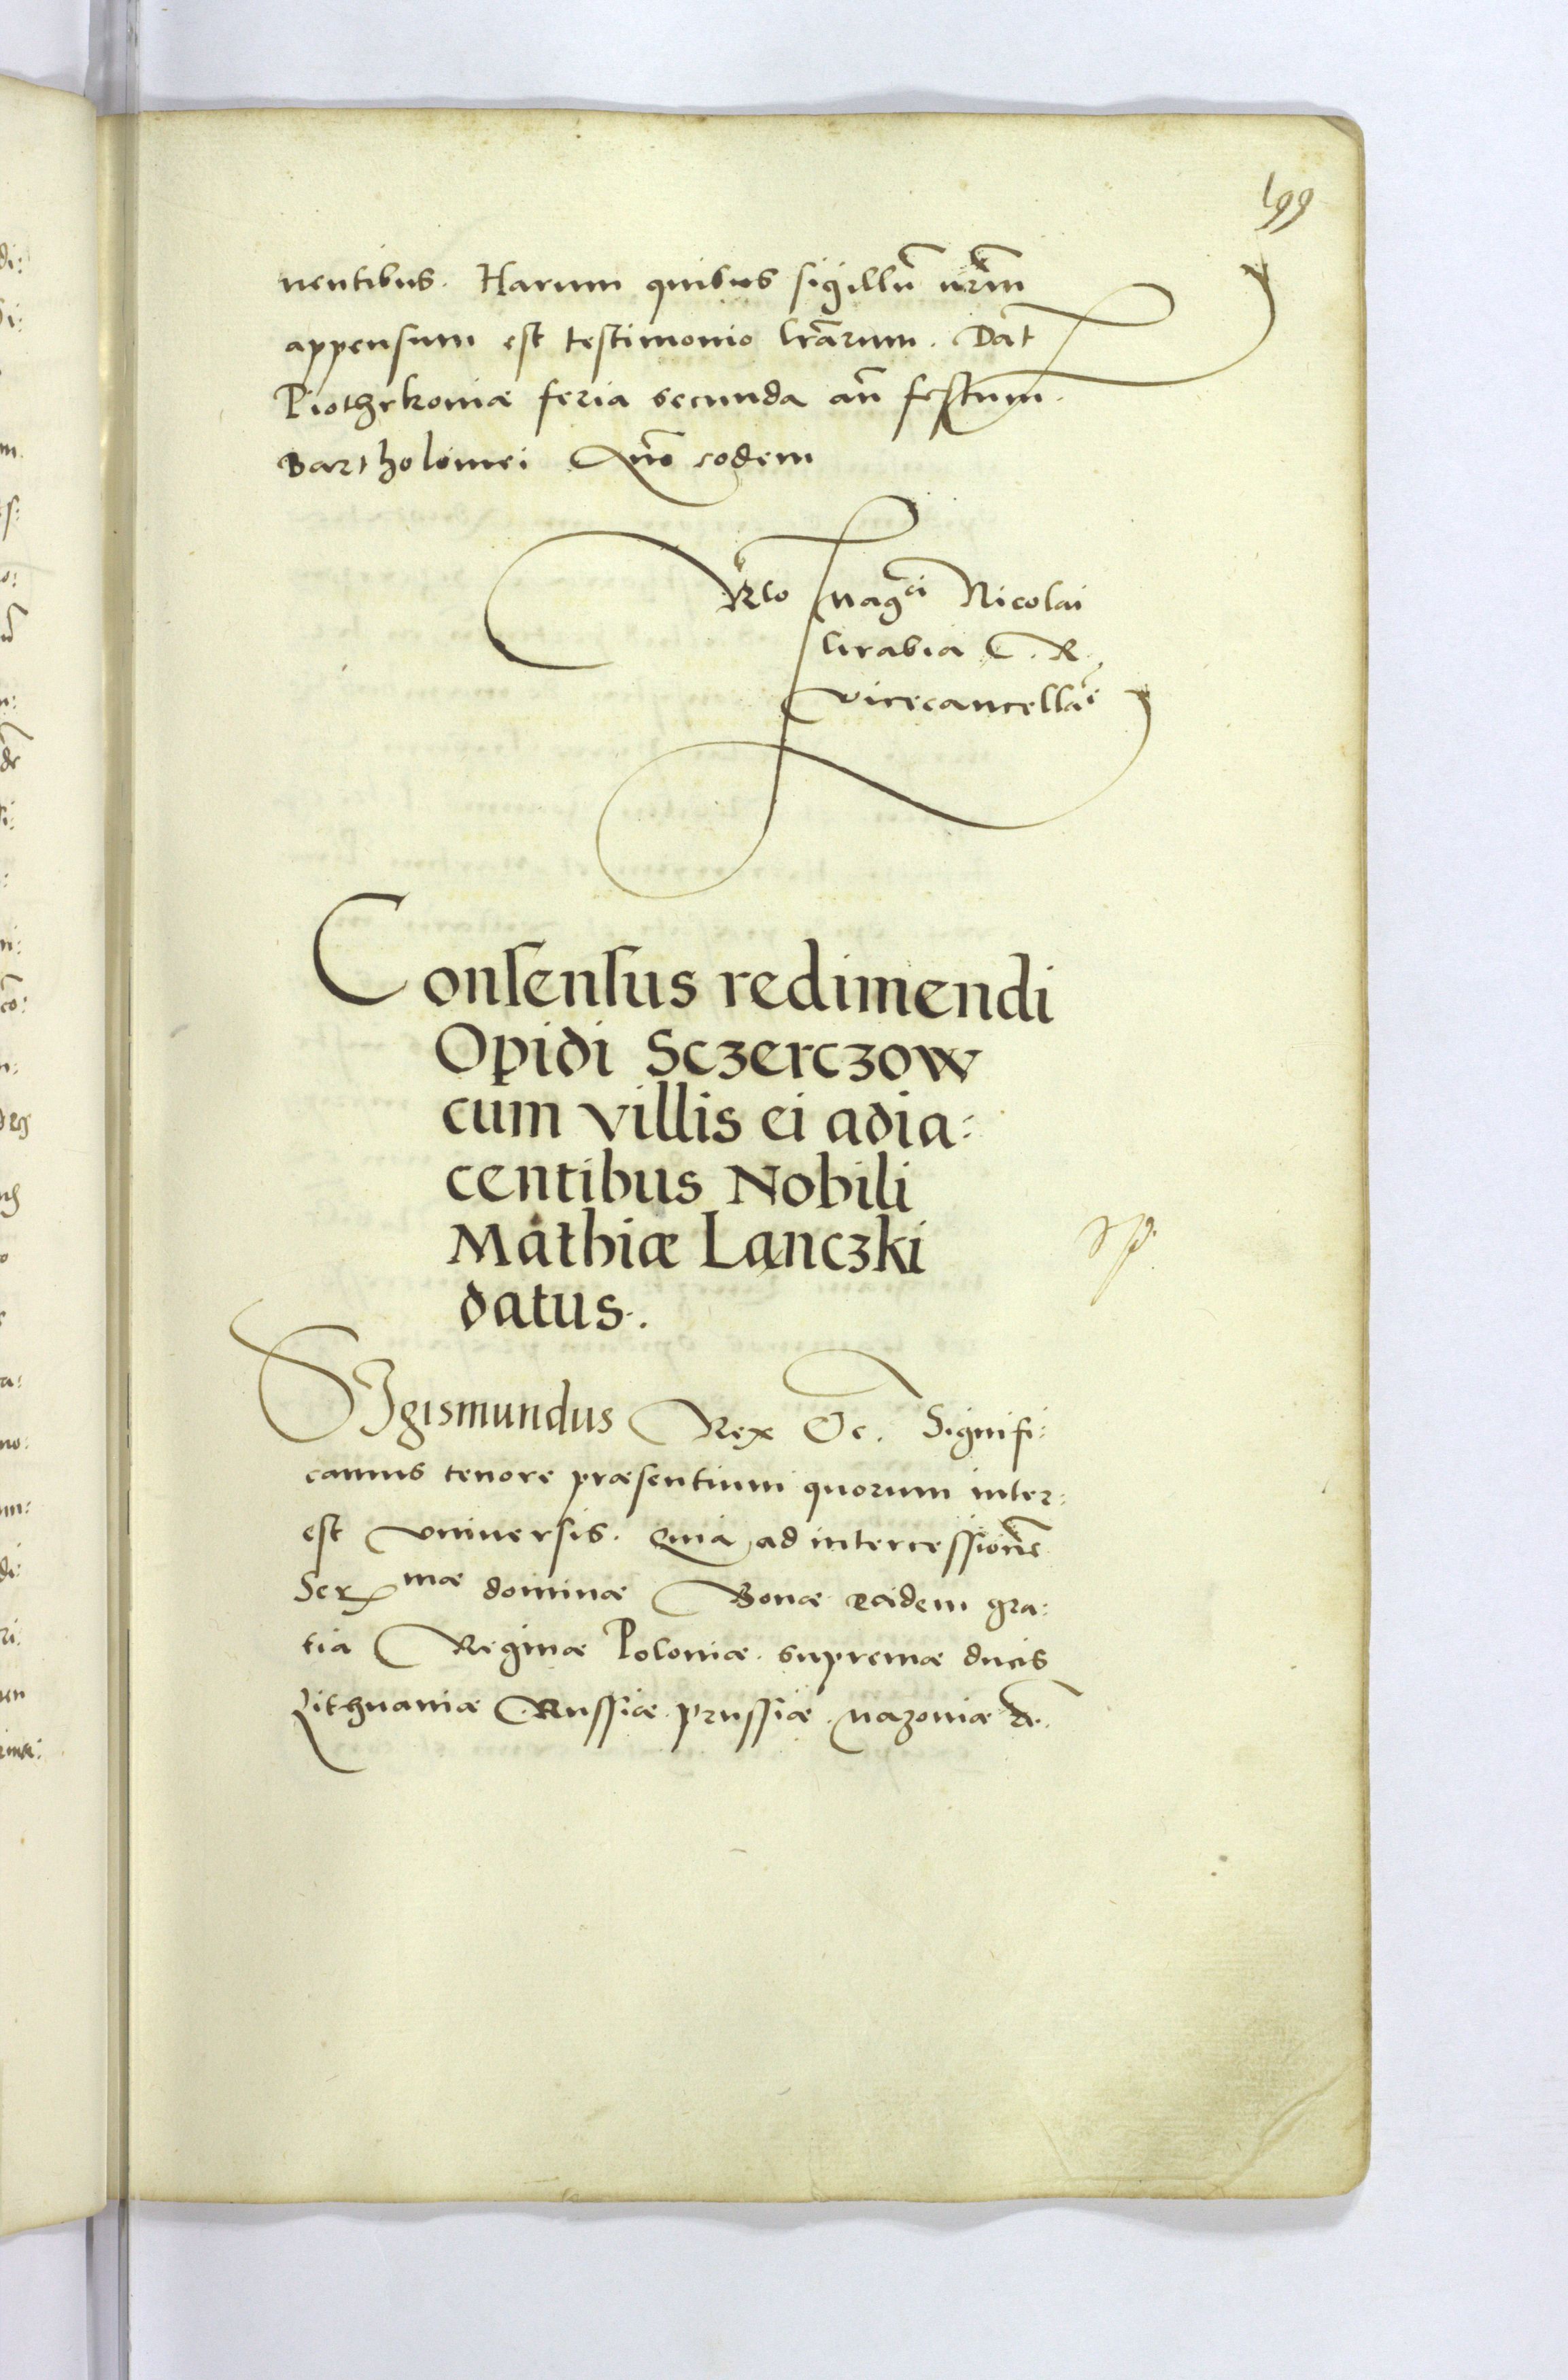 199
nentibus. Harum quibus sigillũ nr̃m
appensum est testimonio lr̃arum. Dat
Piothrkoviæ feria secunda añ festum
Bartholomei Anño eodem
Rl̃o mag^ci Nicolai
Grabia C. R.
vicecancellãr
Consensus redimendi
Opidi Sczerczow
cum villis ei adia:
centibus Nobili
Mathiæ Lanczki
datus.
SIgismundus Rex Etc. Signifi:
camus tenore præsentium quorum inter:
est universis. Quia ad intercessionẽ
Ser^mæ dominæ Bonæ eadem gra:
tia Reginæ Poloniæ. supremæ ducis
Lithuaniæ Russiæ. prussiæ. mazoviæ etc.